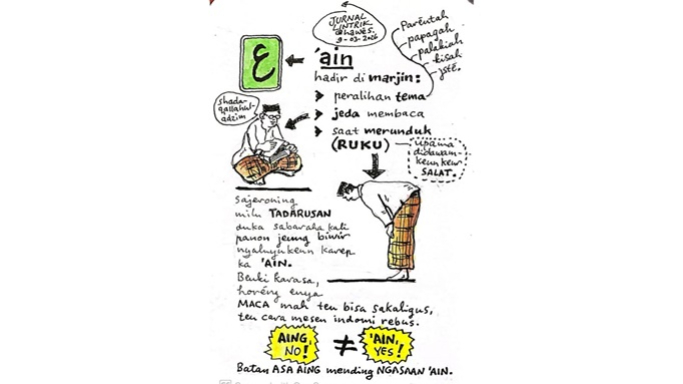 JURNAL
LINTRIK
@LAWÉS.
9-03-2026
ع
'ain
hadir di marjin:
peralihan tema
jeda membaca
saat merunduk
(RUKU)
Paréntah
papagah
palakiah
kisah
jsté.
shada-
qallahul-
adzim
upama
didawam-
keun keur
SALAT.
Sajeroning
milu TADARUSAN
duka sabaraha kali
panon jeung biwir
nyaluyukeun karep
ka 'AIN.
Beuki karasa,
horéng enya
MACA mah teu bisa sakaligus,
teu cara mesen indomi rebus.
AING,
NO!
≠
'AIN,
YES!
Batan ASA AING mending NGASAAN 'AIN.